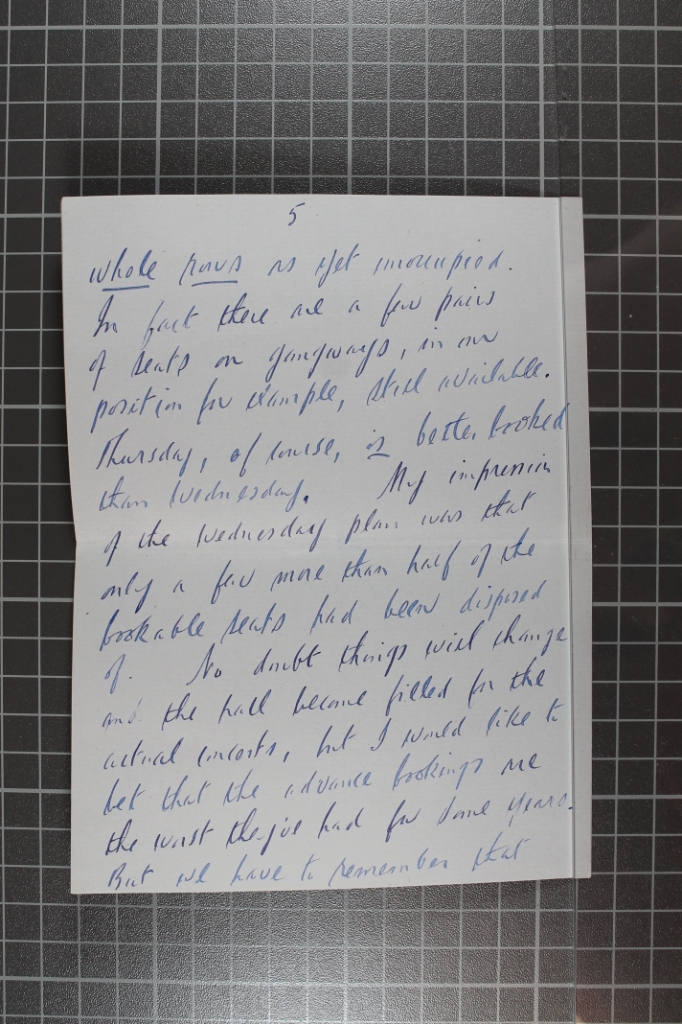 5
whole rows as yet unoccupied.
In fact there are a few pairs
of seats on gangways, in our
position for example, still available.
Thursday, of course, is better booked
than Wednesday. My impression
of the Wednesday plan was that
only a few more than half of the
bookable seats had been disposed
of. No doubt things will change
and the hall become filled for the
actual concerts, but I would like to
bet that the advance bookings are
the worst they've had for some years.
But we have to remember that